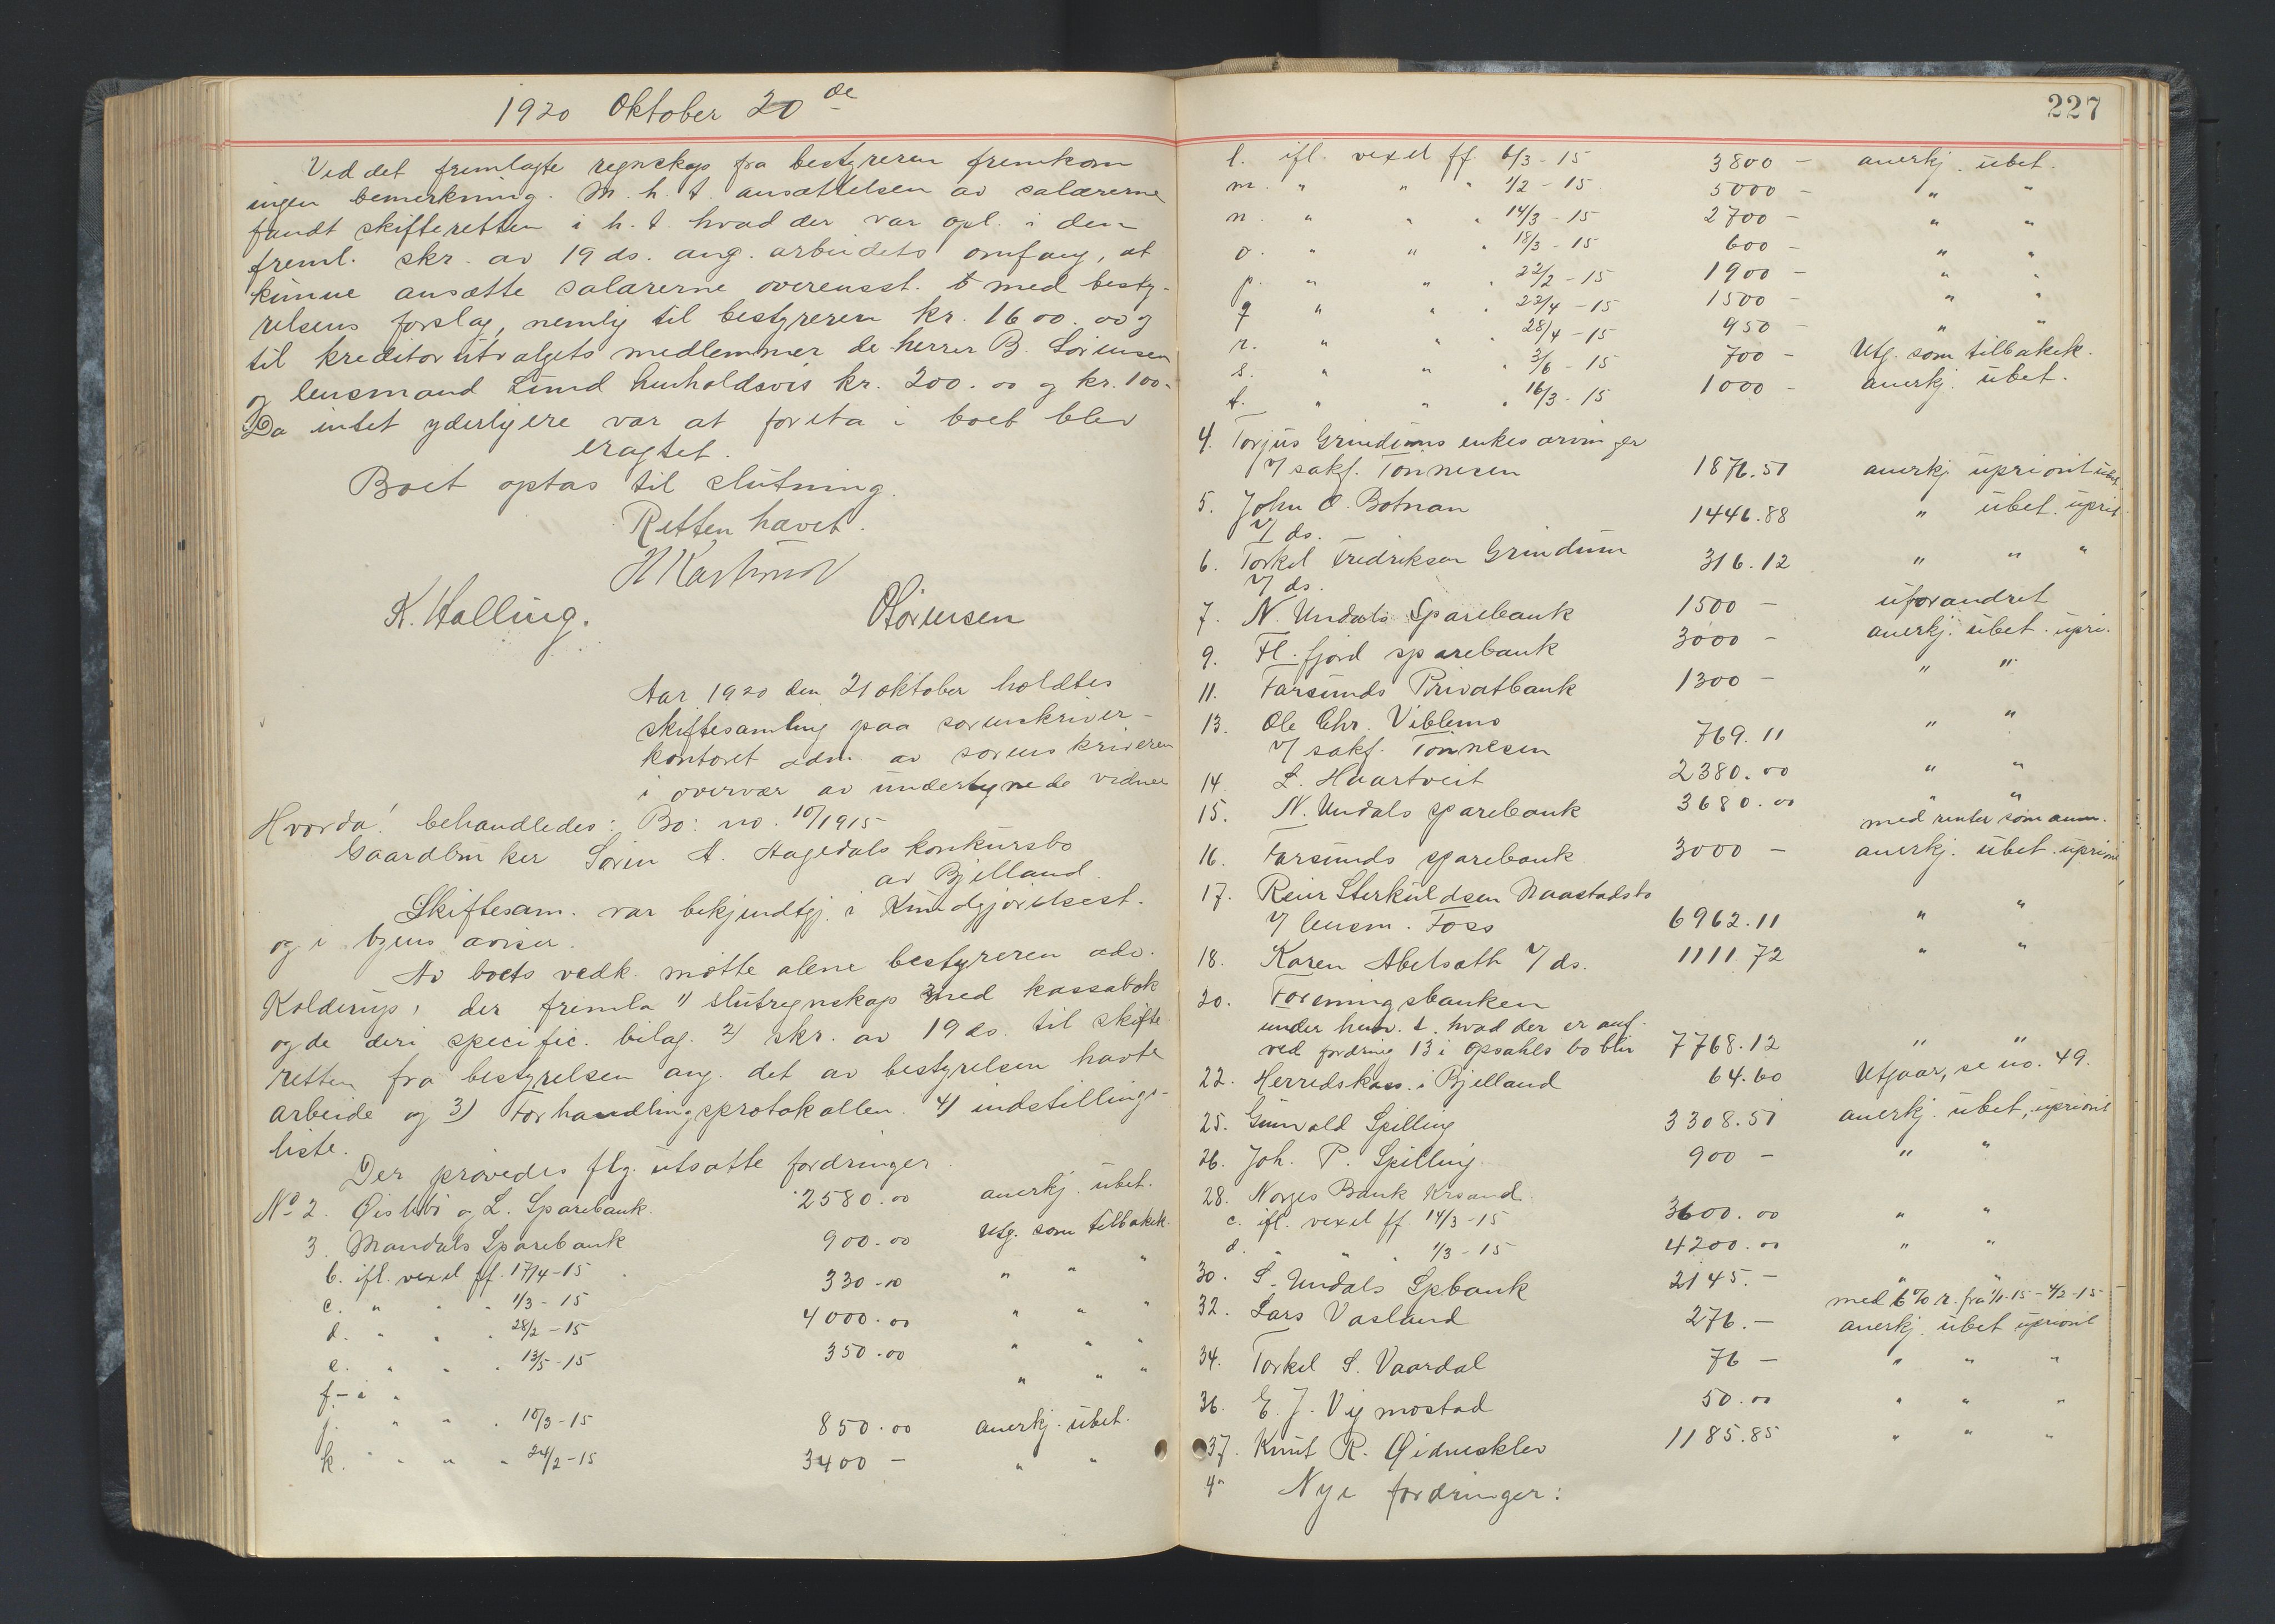 1920 Oktober 20de
Ved det fremlagte regnskap fra bestyreren fremkom
ingen bemerkning. M. h. t. ansættelsen av salærerne
fandt skifteretten i h. t. hvad der var opl. i den
freml. skr. av 19 ds. ang. arbeidets omfang, at
kunne ansætte salærerne overensst. med besty-
relsens forslag, nemlig til bestyreren kr. 1600.00 og
til kreditorutvalgets medlemmer de herrer B. Sørensen
og lensmand Lund henholdsvis kr. 200.00 og kr. 100.-
Da intet yderligere var at foreta i boet blev
eragtet.
Boet optas til slutning.
Retten hævet.
K. Halling.
Sørensen
Aar 1920 den 21 oktober holdtes
skiftesamling paa sorenskriver-
kontoret adm. av sorenskriveren
i overvær av undertegnede vidner
Hvorda! behandledes: Bo: no. 10/1915
Gaardbruker Søren A. Hagedals konkursbo
av Bjelland.
Skiftesam. var bekjendtgj. i Kundgjørelsest.
og i byens aviser.
Av boets vedk. møtte alene bestyreren adv.
Kolderup, der fremla 1) slutregnskap med kassabok
og de deri specific. bilag. 2) skr. av 19 ds. til skifte
retten fra bestyrelsen ang. det av bestyrelsen havte
arbeide og 3) Forhandlingsprotokollen. 4) indstillings-
liste.
Der prøvedes flg. utsatte fordringer
No 2. Øislebø og L. Sparebank. 2580.00 anerkj. ubet.
3. Mandals Sparebank 900.00 Utg. som tilbakek.
b. ifl. vexel ff. 17/4-15 330.10 " " "
c. " " " 1/3-15 4000.00 " " "
d. " " " 28/2-15 350.00 " " "
e. " " " 13/5-15 " " "
f - i "
j. " " " 10/3-15 850.00 anerkj. ubet.
k. " " " 24/2-15 3400 - " "
227
l. ifl. vexel ff. 6/3-15 3800 - anerkj. ubet.
m. " " " 1/2-15 5000 - " "
n. " " " 14/3-15 2700 - " "
o. " " " 18/3-15 600 - " "
p. " " " 22/2-15 1900 - " "
q " " " 22/4-15 1500 - " "
r. " " " 28/4-15 950 - " "
s. " " " 3/6-15 700 - Utg. som tilbakek.
t. " " " 16/3-15 1000 - anerkj. ubet.
4. Torjus Grindems enkes arvinger
v/ sakf. Tønnesen 1876.51 anerkj upriorit ubet.
5. John O. Botnan 1446.88 " ubet. uprit.
v/ ds.
6. Torkel Fredriksen Grindum 316.12 " " "
v/ ds.
7. N. Undals Sparebank 1500 - uforandret
9. Fl. fjord sparebank 3000 - anerkj. ubet. upri.
11. Farsunds Privatbank 1300 - " "
13. Ole Chr. Viblemo
v/ sakf. Tønnesen 769.11 " "
14. L. Haartveit 2380.00 " "
15. N. Undals sparebank 3680.00 " "
med renter som anm.
16. Farsunds sparebank 3000 - anerkj. ubet. upriorit
17. Reier Sterkuldsen Naastadsbo
v/ lensm. Foss 6962.11 " "
18. Karen Abelsæth v/ ds. 1111.72 " "
20. Foreningsbanken
under henv. t. hvad der er anf.
ved fordring 13 i Opsahls bo blir 7768.12 " "
22. Herredskass. i Bjelland 64.60 Utgaar, se no. 49.
25. Gunvald Spilling 3308.51 anerkj. ubet, upriorit
26. Joh. P. Spilling. 900 - " "
28. Norges Bank Krsand.
c. ifl. vexel ff 14/3-15 3600.00 " "
d. " " " 1/3-15 4200.00 " "
30. S. Undals Spbank 2145.- " "
med 6% r. fra 1/1-15 - 4/2-15
32. Lars Vasland 276.- anerkj. ubet upriorit
34. Torkel S. Vaardal 76 - " " "
36. E. J. Vigmostad 50.00 " " "
37. Knut R. Øidnesklev 1185.85 " " "
Nye fordringer: